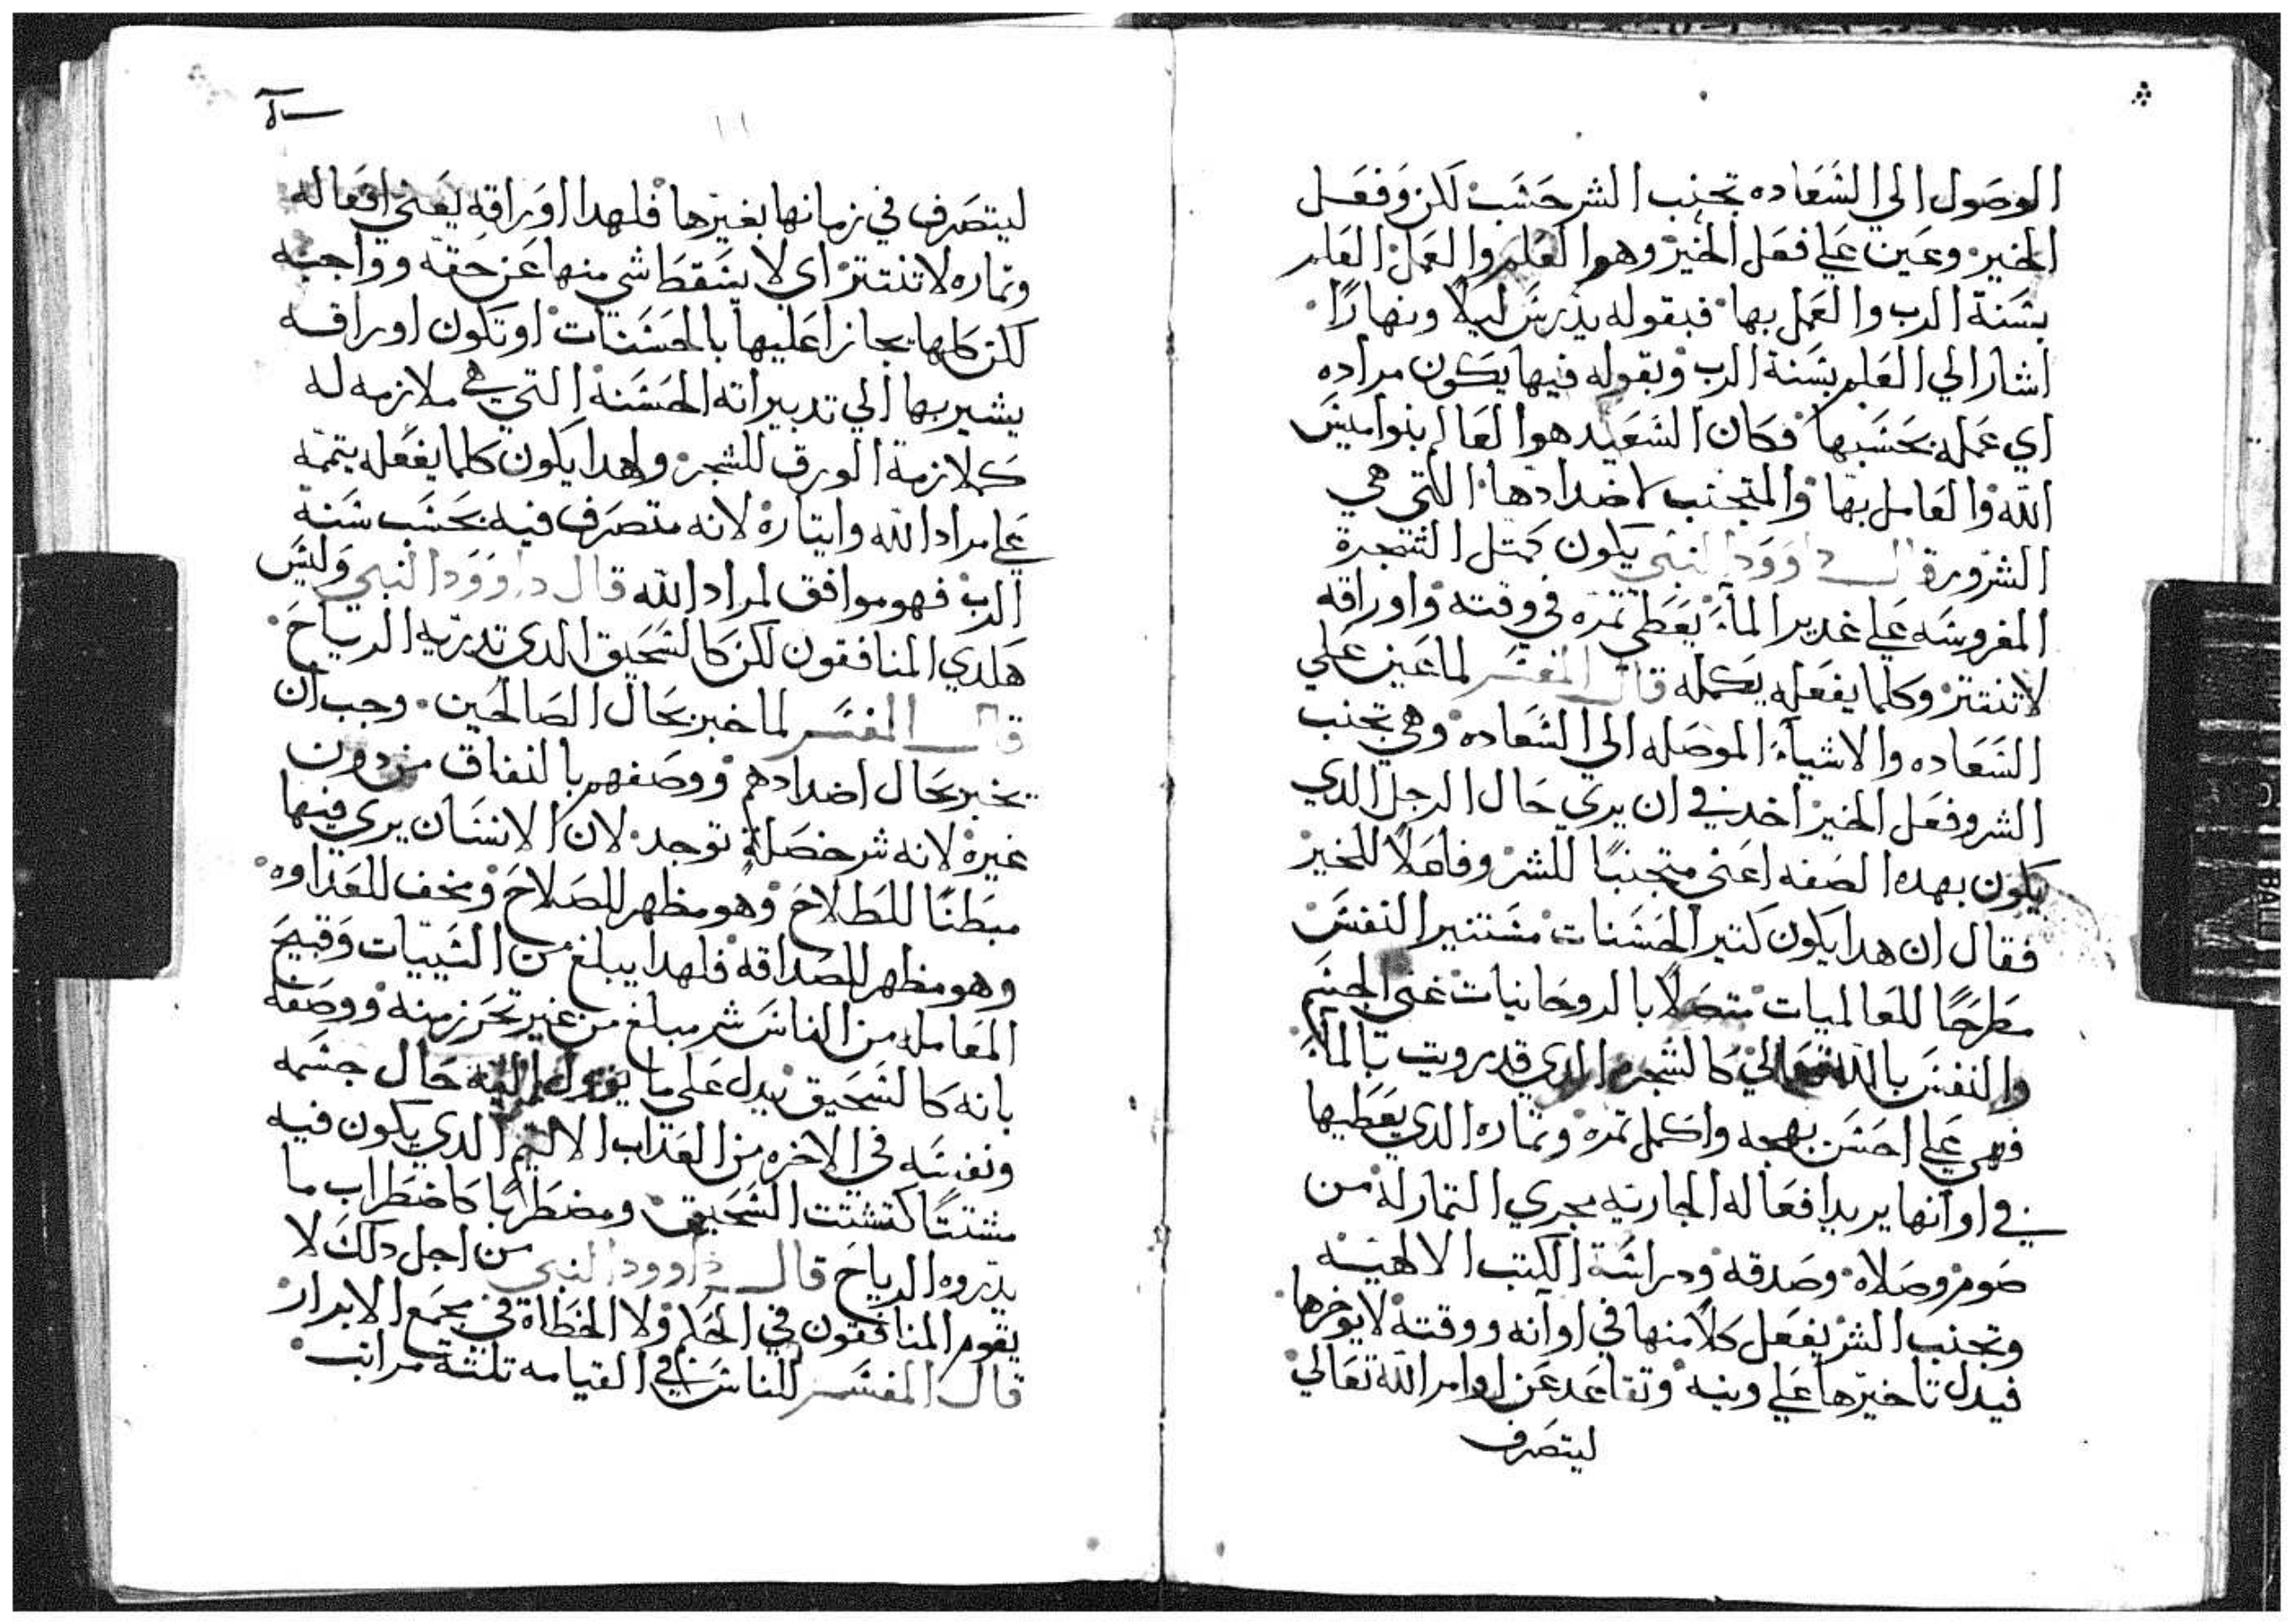 الوصول الي السعاده تجنب الشر حسب لكن وفعل
الخير وعين علي فعل الخير وهو العلم والعمل العلم
بسنة الرب والعمل بها فبقوله يدرس ليلًا ونهارًا
اشار الي العلم بسنة الرب وبقوله فيها يكون مراده
اي عمله بحسبها فكان السعيد هو العالم بنواميس
الله والعامل بها والمتجنب لاضدادها التي هي
الشرور قال داوود النبي يكون كمتل الشجرة
المغروسه علي غدير المآء يعطي تمره في وقته واوراقه
لا تنتتر وكلما يفعله يكمله قال المفسر لما عين علي
السعاده والاشياء الموصله الي السعاده وهي تجنب
الشر وفعل الخير اخد في ان يري حال الرجل الدي
يكون بهده الصفه اعني متجنبًا للشر وفاعلًا للخير
فقال ان هدا يكون كتير الحسنات مستنير النفس
مطرحًا للعالميات متصلًا بالروحانيات غني الجسم
والنفس بالله تعالي كالشجره الدي قد رويت بالمآء
فهي علي احسن بهجه واكمل تمره وتماره الدي يعطيها
في اوانها يريد افعاله الجاريه مجري التمار له من
صوم وصلاه وصدقه ودراسة الكتب الالهيه
وتجنب الشر يفعل كلًا منها في اوانه ووقته لا يوخرها
فيدل تاخيرها علي ونيه وتقاعد عن اوامر الله تعالي
ليتصرف
ليتصرف في زمانها بغيرها فلهدا اوراقه يعني افعاله
وتماره لا تنتتر اي لا يسقط شي منها عن حقه وواجبه
لكن كلها يجازا عليها بالحسنات او تكون اوراقه
يشير بها الي تدبيراته الحسنة التي هي ملازمه له
كملازمة الورق للشجر ولهدا يكون كلما يفعله يتممه
علي مراد الله وايتاره لانه متصرف فيه بحسب سنة
الرب فهو موافق لمراد الله قال داوود النبي وليس
هلدي المنافقون لكن كالسحيق الدي تدريه الرياح
قال المفسر لما خبر بحال الصالحين وجب ان
يخبر بحال اضدادهم ووصفهم بالنفاق من دون
غيره لانه شر خصله توجد لان الانسان يري فيها
مبطنًا للطلاح وهو مظهر للصلاح ومخف للعداوه
وهو مظهر للصداقه فلهدا يبلغ من السييات وقبيح
المعامله من الناس شر مبلغ من غير تحرز منه ووصفه
بانه كالسحيق يدل علي ما يوول اليه حال جسمه
ونفسه في الاخره من العداب الاليم الدي يكون فيه
مشتتًا كتشتت السحيق ومضطربًا كاضطراب ما
يدروه الرياح قال داوود النبي من اجل دلك لا
يقوم المنافقون في الحكم ولا الخطاة في مجمع الابرار
قال المفسر للناس في القيامه تلثة مراتب